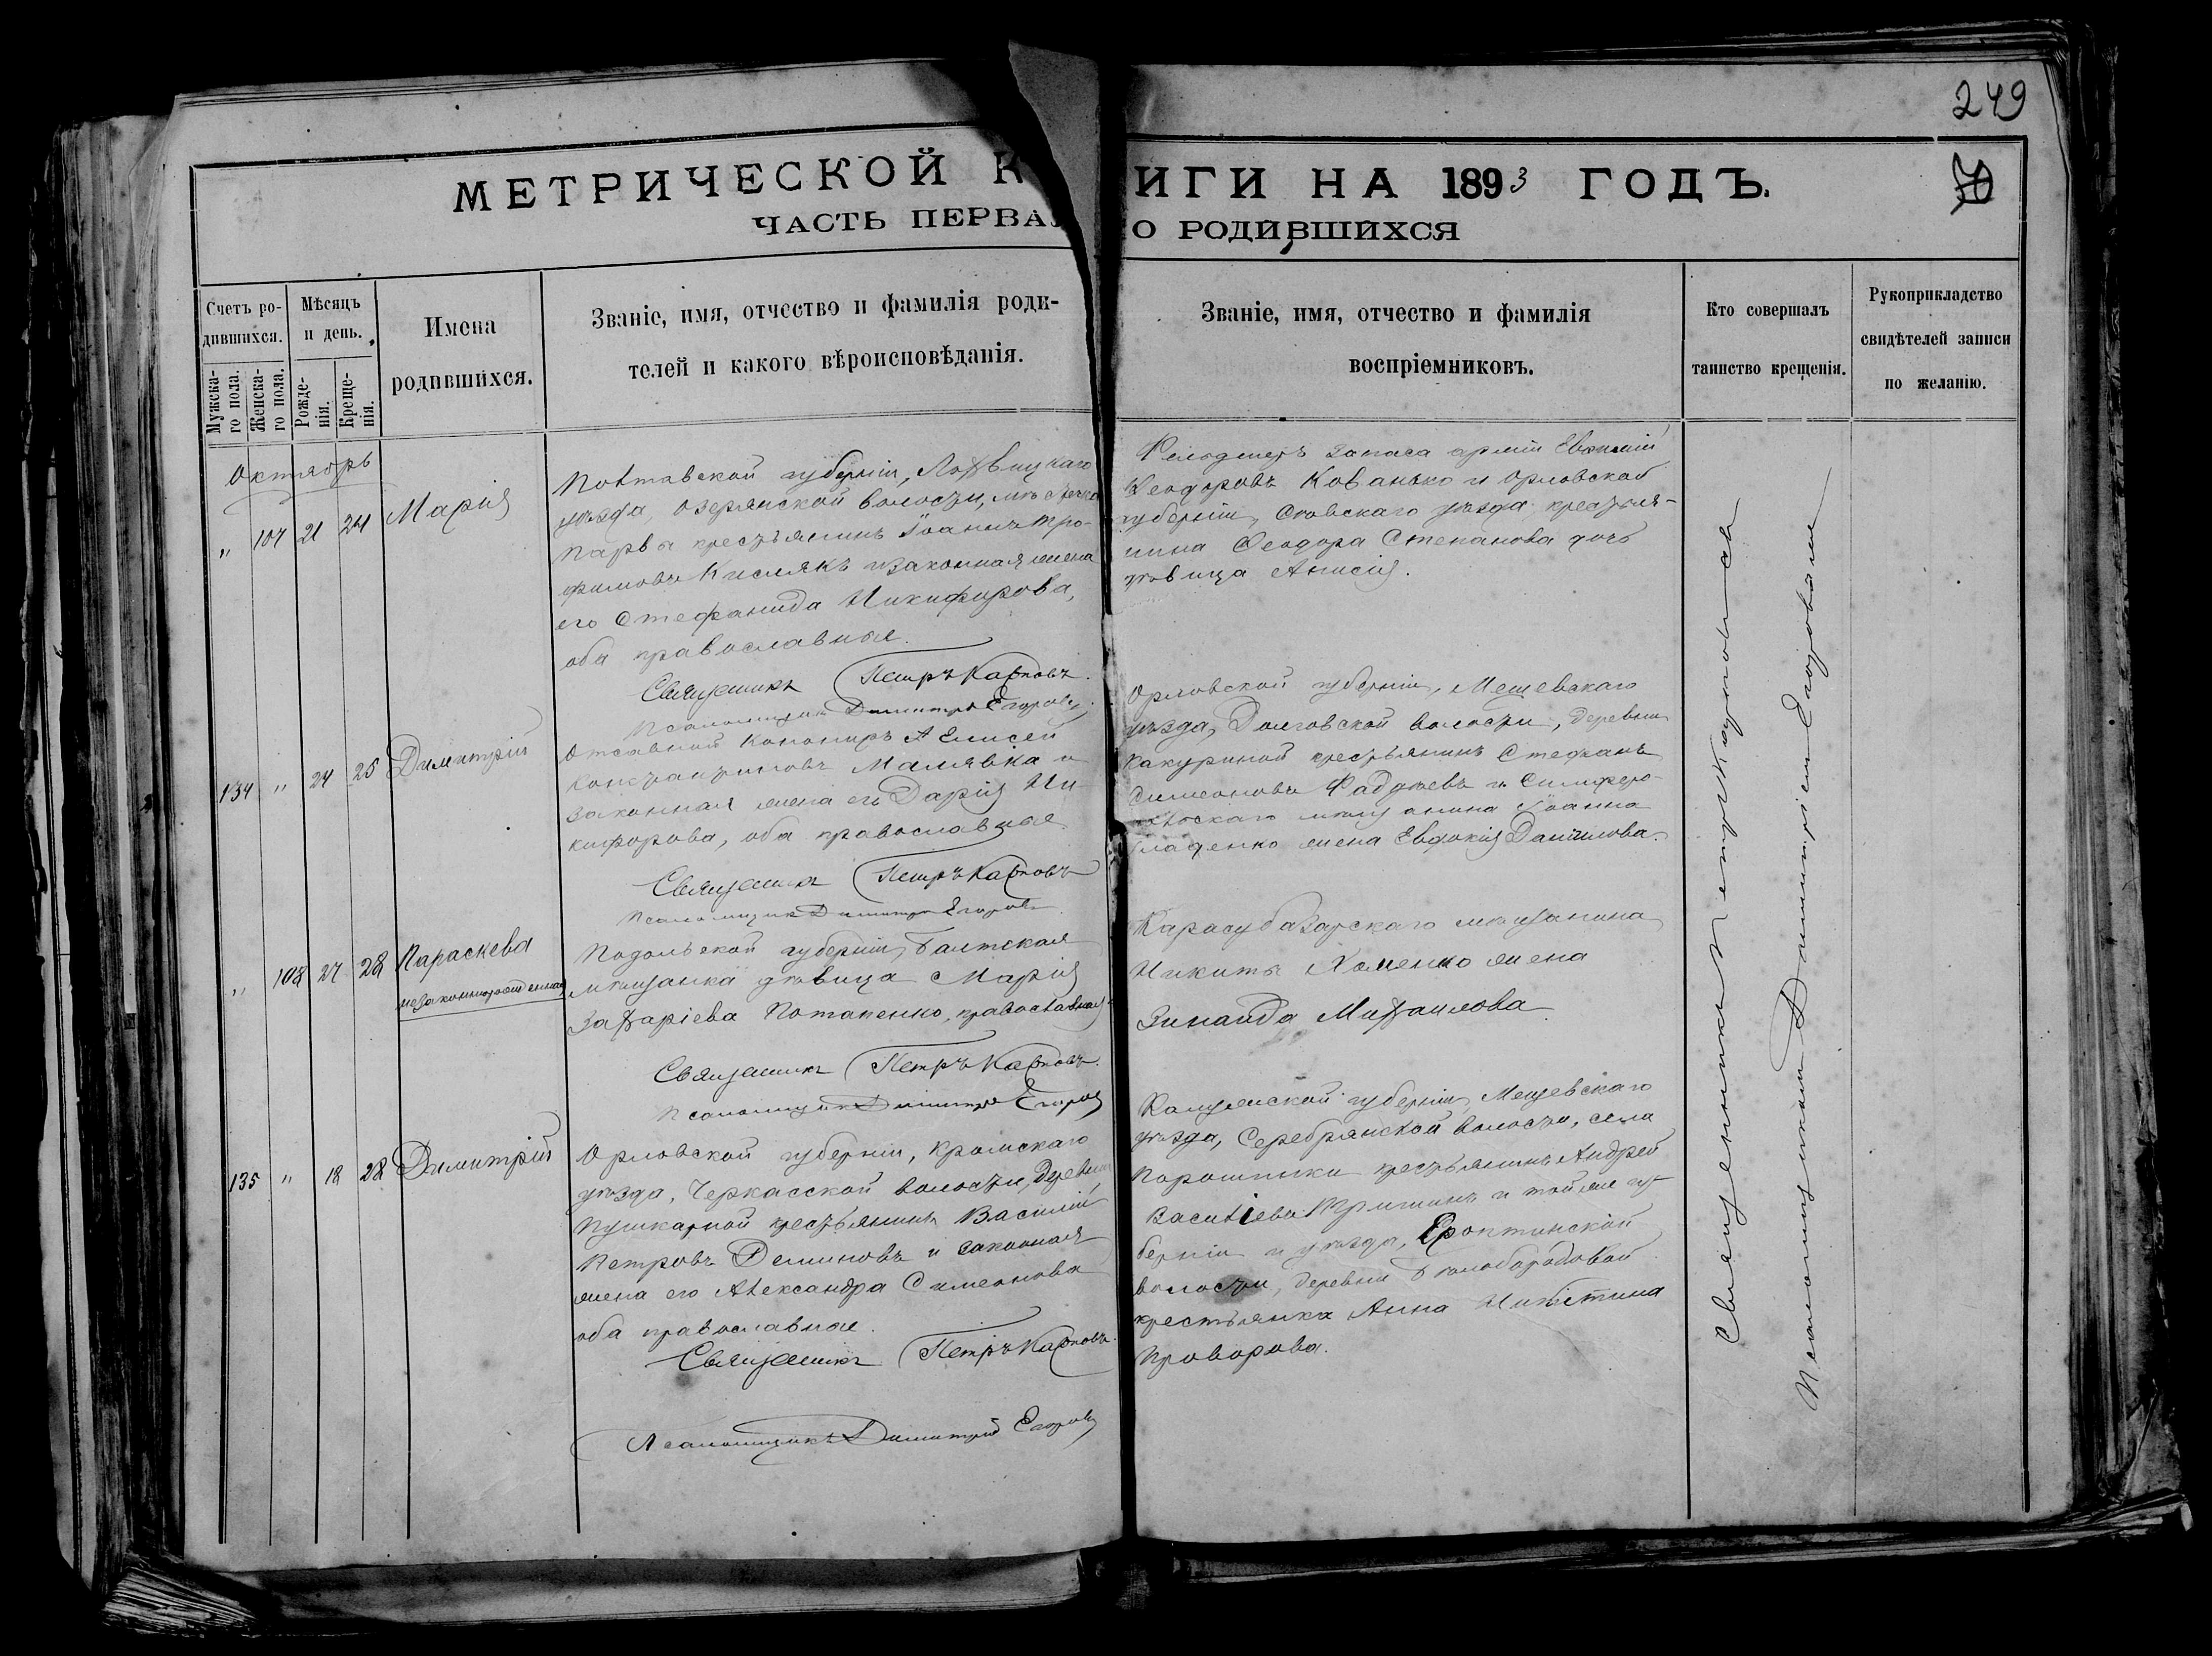 249
МЕТРИЧЕСКОЙ К
ИГИ НА 1893 ГОДЪ.
ЧАСТЬ ПЕРВАЯ
О РОДИВШИХСЯ
Счетъ ро-
дившихся.
Мужска-
го пола.
Женска-
го пола.
Мѣсяцъ
и день.
Рожде-
нія.
Креще-
нія.
Имена
родившихся.
Званіе, имя, отчество и фамилія роди-
телей и какого вѣроисповѣданія.
Званіе, имя, отчество и фамилія
воспріемниковъ.
Кто совершалъ
таинство крещенія.
Рукоприкладство
свидѣтелей записи
по желанію.
Октябрь
" 107 21 24 Марія
Полтавской губерніи, Лохвицкаго
уѣзда, Озерянской волости,
крестьянинъ Іоаннъ Тро-
фимовъ Кислякъ и законная жена
его Стефанида Никифорова,
оба православные.
Священникъ Петръ Карповъ.
Псаломщикъ Димитрій Егоровъ.
Фельдшеръ запаса арміи Евѳимій
Ѳеодоровъ Кованько и Орловской
губерніи, уѣзда, крестья-
нина Ѳеодора Степанова дочь
дѣвица Анисія.
134 " 24 25 Димитрій
Отставной Канониръ Елисей
Константиновъ Малявка и
законная жена его Дарія Ни-
кифорова, оба православные
Священникъ Петръ Карповъ
Псаломщикъ Димитрій Егоровъ
Орловской губерніи, Мещевскаго
уѣзда, Долговской волости, деревни
Какуриной крестьянинъ Стефанъ
Симеоновъ Фаддѣевъ и Симферо-
польскаго мѣщанина Іоанна
жена Евдокія Даніилова.
" 108 27 28 Параскева
незаконнорожденная
Подольской губерніи, Балтская
мѣщанка дѣвица Марія
Захаріева Потапенко, православная
Священникъ Петръ Карповъ.
Псаломщикъ Димитрій Егоровъ
Карасубазарскаго мѣщанина
Никиты Хоменко жена
Зинаида Михаилова
135 " 18 28 Димитрій
Орловской губерніи, Кромскаго
уѣзда, Черкасской волости, деревни
Пушкарной крестьянинъ Василій
Петровъ Деминовъ и законная
жена его Александра Симеонова
оба православные.
Священникъ Петръ Карповъ.
Псаломщикъ Димитрій Егоровъ
Калужской губерніи, Мещевскаго
уѣзда, Серебрянской волости, села
крестьянинъ Андрей
Васильевъ и той же гу-
берніи и уѣзда,
волости, деревни
крестьянка Анна
Проворова.
Священникъ Петръ Карповъ съ
Псаломщикомъ Димитріемъ Егоровымъ